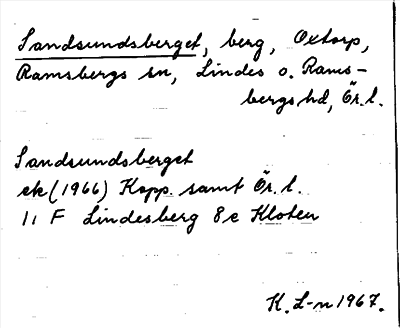 Sandsundsberget, berg, Oxtorp,
Ramsbergs sn, Lindes o. Rams-
bergs hd, Ör. l.
Sandsundsberget
ek (1966) Kopp. samt Ör. l.
11 F Lindesberg 8 e Kloten
K. L-n 1967.